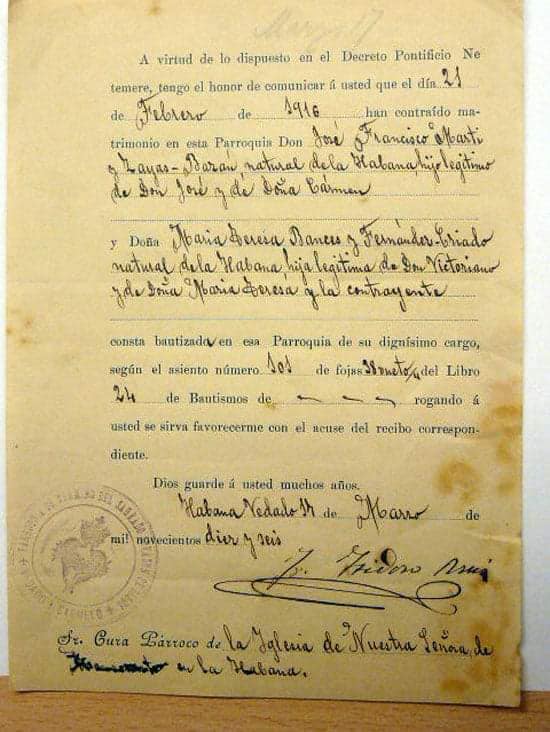 Marzo 17
A virtud de lo dispuesto en el Decreto Pontificio Ne
temere, tengo el honor de comunicar á usted que el día 21
de Febrero de 1916 han contraído ma-
trimonio en esta Parroquia Don José Francisco Marti
y Zayas-Bazán, natural de la Habana, hijo legitimo
de Don José y de Doña Cármen
y Doña Maria Teresa Bances y Fernández-Criado
natural de la Habana, hija legitima de Don Victoriano
y de Doña Maria Teresa, y la contrayente
consta bautizada en esa Parroquia de su dignísimo cargo,
según el asiento número 101 de fojas 38 del Libro
24 de Bautismos de rogando á
usted se sirva favorecerme con el acuse del recibo correspon-
diente.
Dios guarde á usted muchos años.
Habana Vedado 17 de Marzo de
mil novecientos diez y seis
Fr. Isidoro Ruiz
Sr. Cura Párroco de la Iglesia de Nuestra Señora de
en la Habana.